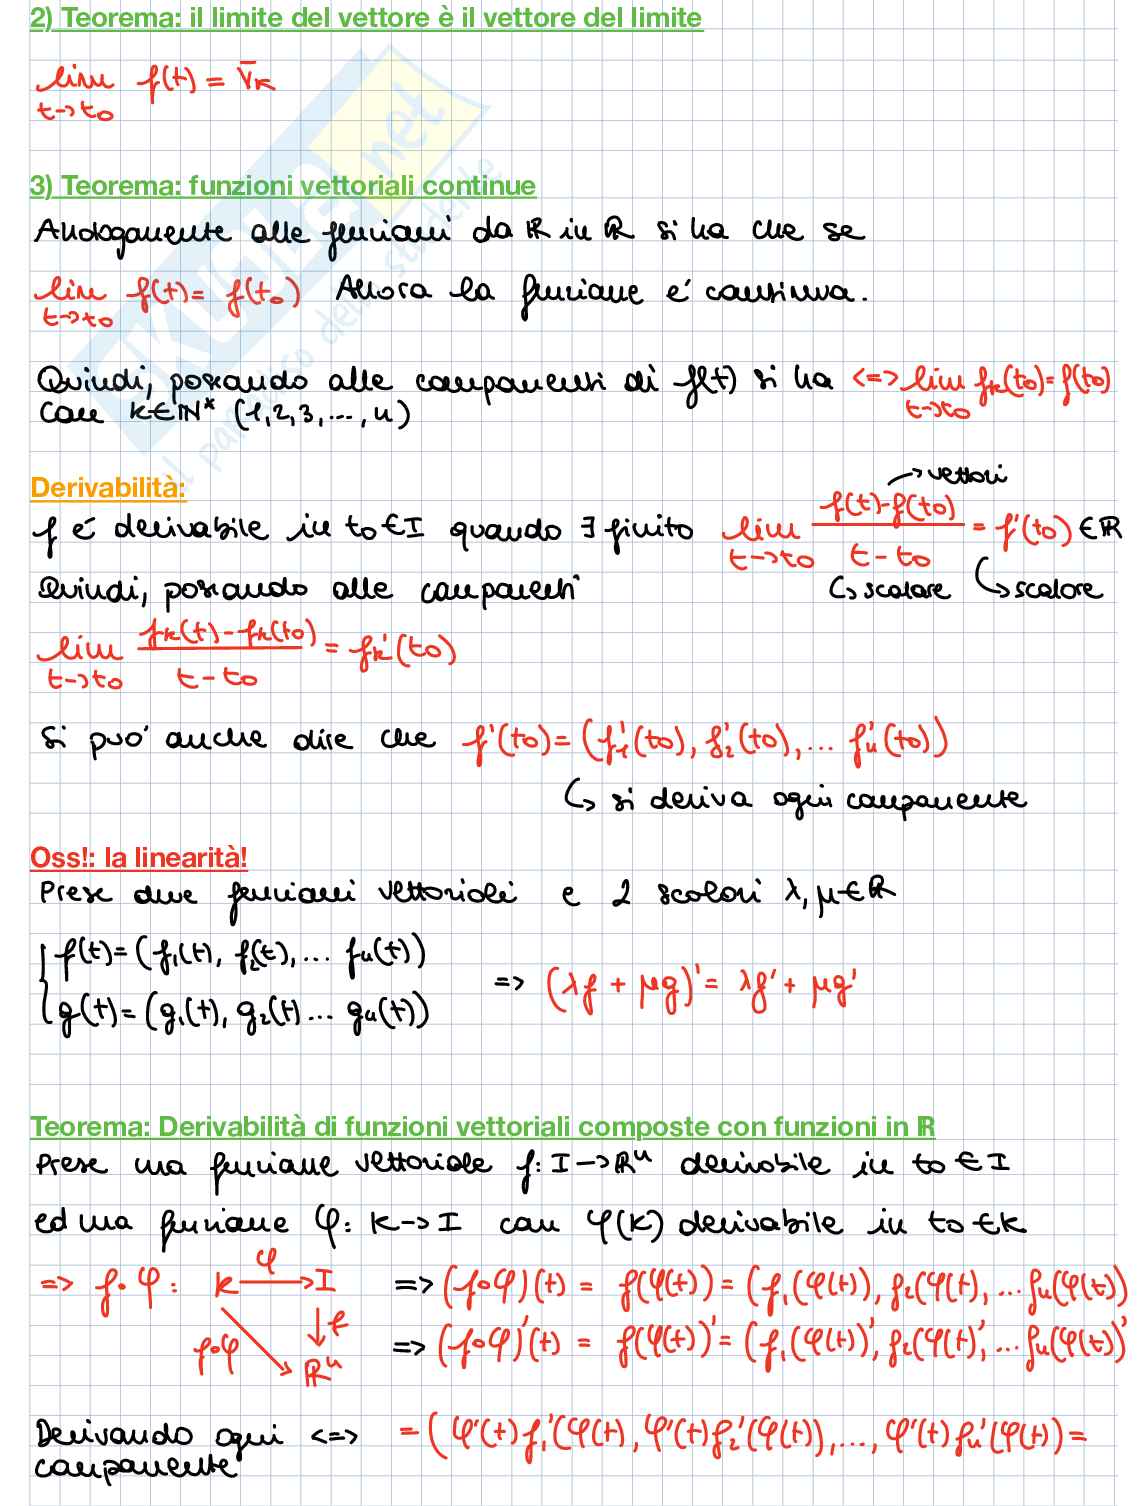 2) Teorema: il limite del vettore è il vettore del limite
lim f(t) = v̄k
t→t₀
3) Teorema: funzioni vettoriali continue
Analogamente alle funzioni da ℝ in ℝ si ha che se
lim f(t) = f(t₀) Allora la funzione e' continua.
t→t₀
Quindi, passando alle componenti di f(t) si ha <=> lim fk(t₀) = f(t₀)
t→t₀
con k∈ℕ* (1,2,3, ..., n)
Derivabilità:
→ vettori
f e' derivabile in t₀∈I quando ∃ finito lim f(t)-f(t₀) / t-t₀ = f'(t₀) ∈ℝ
t→t₀
↳ scalare ↳ scalare
Quindi, passando alle componenti
lim fk(t) - fk(t₀) / t - t₀ = fk'(t₀)
t→t₀
Si puo' anche dire che f'(t₀) = (f₁'(t₀), f₂'(t₀), ... fn'(t₀))
↳ si deriva ogni componente
Oss!: la linearità!
Prese due funzioni vettoriali e 2 scalari λ, μ∈ℝ
{ f(t) = (f₁(t), f₂(t), ... fn(t))
g(t) = (g₁(t), g₂(t) ... gn(t))
=> (λf + μg)' = λf' + μg'
Teorema: Derivabilità di funzioni vettoriali composte con funzioni in ℝ
Prese una funzione vettoriale f: I→ℝⁿ derivabile in t₀∈I
ed una funzione φ: k→I con φ(k) derivabile in t₀∈k
=> f∘φ : k →φ I
↓ f
f∘φ ↘ ℝⁿ
=> (f∘φ)(t) = f(φ(t)) = (f₁(φ(t)), f₂(φ(t), ... fn(φ(t))
=> (f∘φ)'(t) = f(φ(t))' = (f₁(φ(t))', f₂(φ(t)', ... fn(φ(t))'
Derivando ogni componente <=> = (φ'(t)f₁'(φ(t), φ'(t)f₂'(φ(t)), ..., φ'(t)fn'(φ(t)) =
SKUOLA.net
il paradiso dello studente